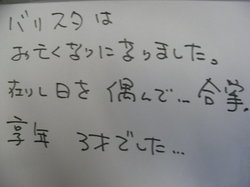 バリスタは
お亡くなりになりました。
在りし日を偲んで…合掌.
享年 3才でした…